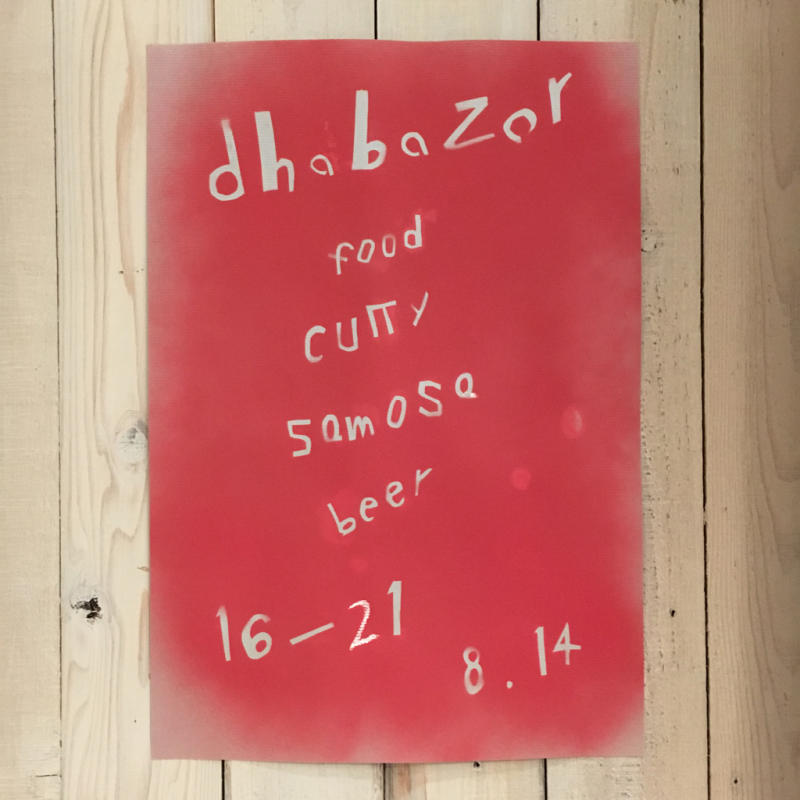 dhabazar
food
curry
samosa
beer
16-21
8.14